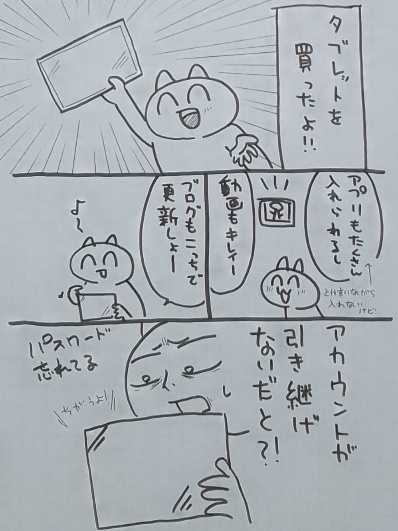 タブレットを
買ったよ!!
アプリもたくさん
入れられるし
とは言いながら
入れない
けど
動画もキレイー
ブログもこっちで
更新しよー
よ〜
アカウントが
引き継げ
ないだと?!
パスワード
忘れてる
ちがうよ!